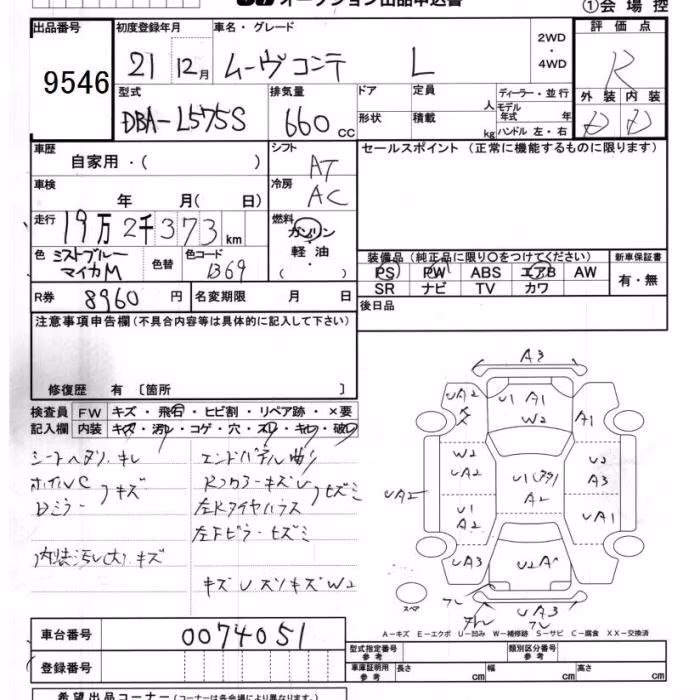 オークション出品申込書
①会場控
出品番号 初度登録年月 車名・グレード 評価点
9546 21 12月 ムーヴコンテ L 2WD・4WD R
型式 排気量 ドア 定員 人 ディーラー・並行 外装 内装
DBA-L575S 660cc 形状 積載 kg モデル年式 年 ハンドル 左・右 D D
車歴 自家用・( ) シフト AT セールスポイント (正常に機能するものに限ります)
車検 年 月( 日) 冷房 AC
走行 19万2千373km 燃料 ガソリン・軽油・( )
色 ミストブルーマイカM 色替 色コード B69
装備品 (純正品に限り○をつけてください) 新車保証書
PS PW ABS エアB AW 有・無
SR ナビ TV カワ
R券 8960円 名変期限 月 日 後日品
注意事項申告欄(不具合内容等は具体的に記入して下さい)
修復歴 有〔箇所 〕
検査員 FW キズ・飛石・ヒビ割・リペア跡・×要
記入欄 内装 キズ・汚レ・コゲ・穴・スレ・キレ・破レ
シートヘタリ、キレ
ホイルC
Dミラー キズ
内装汚レ(大)、キズ
エンドパネル曲り
左Rタイヤハウス
左Fピラーヒズミ
キズUスリキズW2
A3
UA2 U1 A1 W2 A1
W2 UA2 U2 A3
UA2 U1 A2 A2 UA1
UA3 U2
UA3
スペア
A-キズ E-エクボ U-凹み W-補修跡 S-サビ C-腐食 XX-交換済
車台番号 0074051
型式指定番号 参考 類別区分番号 参考
登録番号
車庫証明用 参考 長さ cm 幅 cm 高さ cm
希望出品コーナー(コーナーは各会場により異なります。)